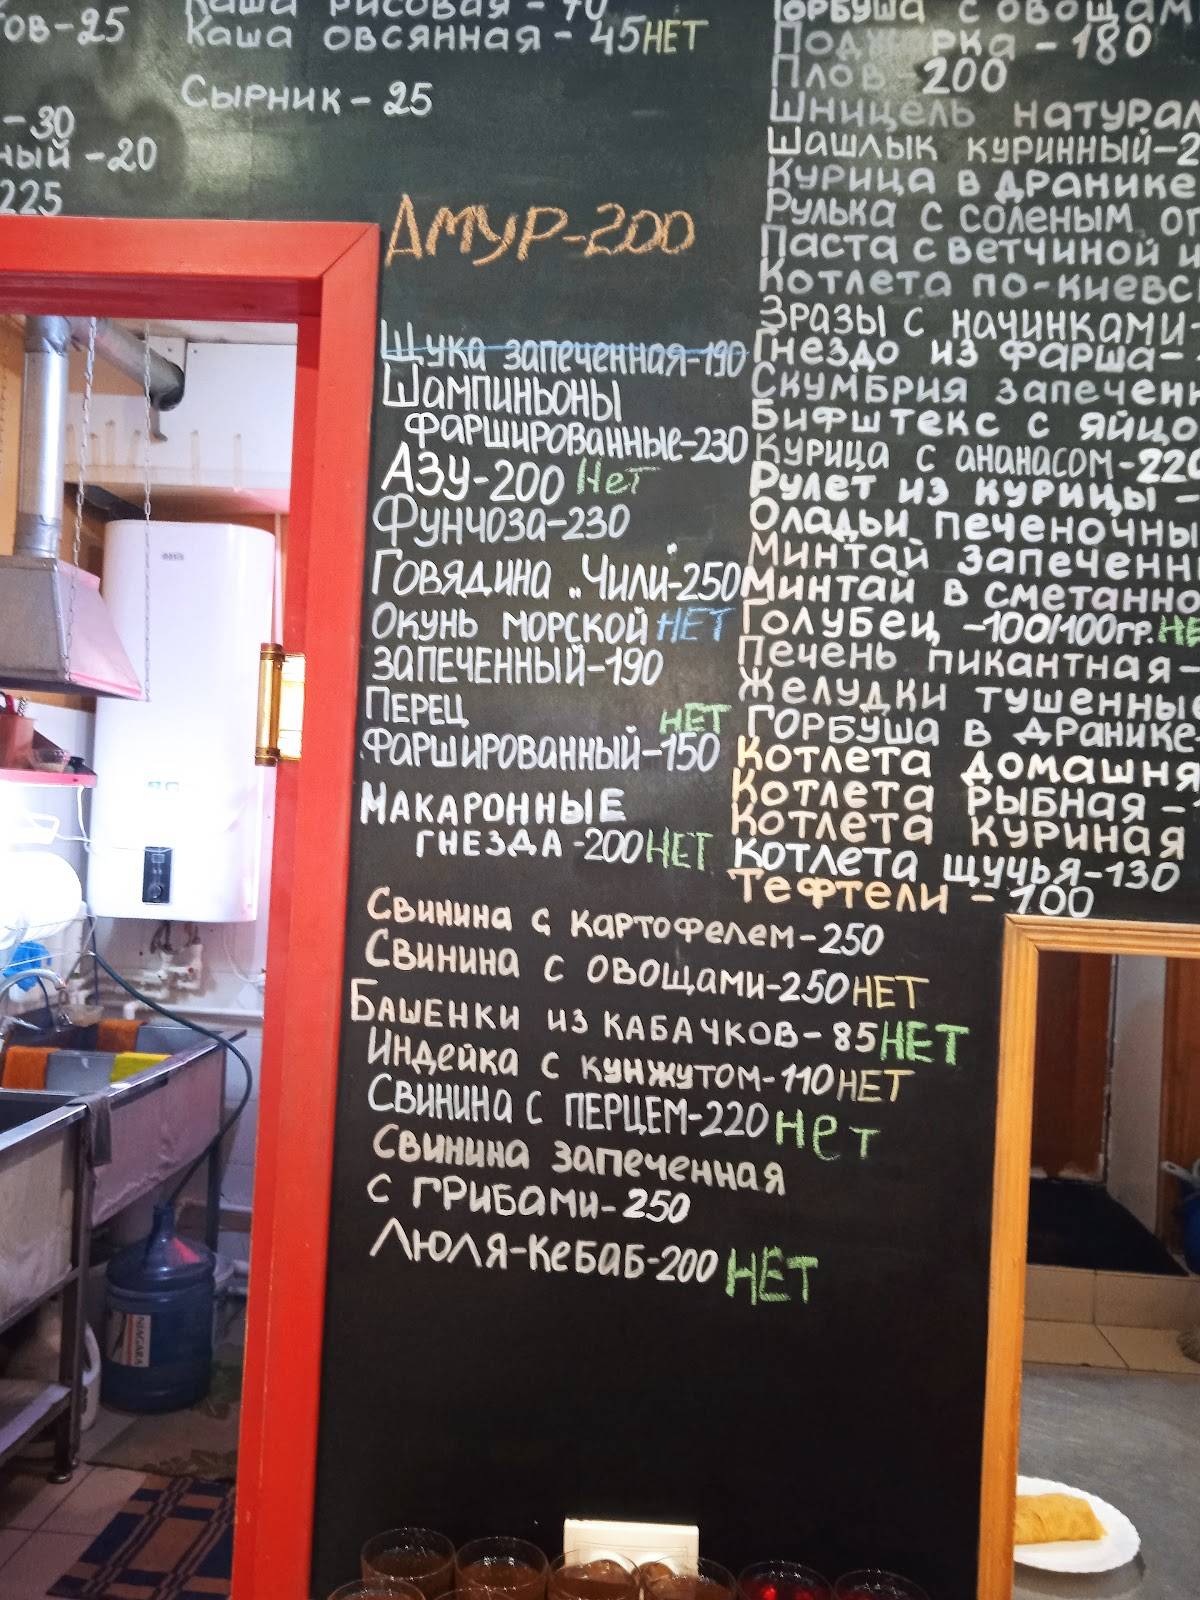 ов-25
Каша рисовая - 70
Каша овсянная - 45 НЕТ
Сырник - 25
- 30
ный - 20
225
АМУР-200
Щука запеченная-190
Шампиньоны
фаршированные-230
АЗУ-200 Нет
Фунчоза-230
Говядина „Чили"-250
Окунь морской НЕТ
запеченный-190
Перец НЕТ
фаршированный-150
Макаронные
гнезда-200 НЕТ
Свинина с картофелем-250
Свинина с овощами-250 НЕТ
Башенки из кабачков-85 НЕТ
Индейка с кунжутом-110 НЕТ
Свинина с перцем-220 Нет
Свинина запеченная
с грибами-250
Люля-кебаб-200 НЕТ
Горбуша с овощам
Поджарка - 180
Плов - 200
Шницель натурал
Шашлык куринный-2
Курица в дранике
Рулька с соленым ог
Паста с ветчиной и
Котлета по-киевс
Зразы с начинками-
Гнездо из фарша-
Скумбрия запечен
Бифштекс с яйцо
Курица с ананасом-220
Рулет из курицы -
Оладьи печеночны
Минтай запеченн
Минтай в сметанно
Голубец -100/100гр. НЕ
Печень пикантная-
Желудки тушенные
Горбуша в дранике-
Котлета домашня
Котлета рыбная -
Котлета куриная
Котлета щучья-130
Тефтели - 100
NIAGARA